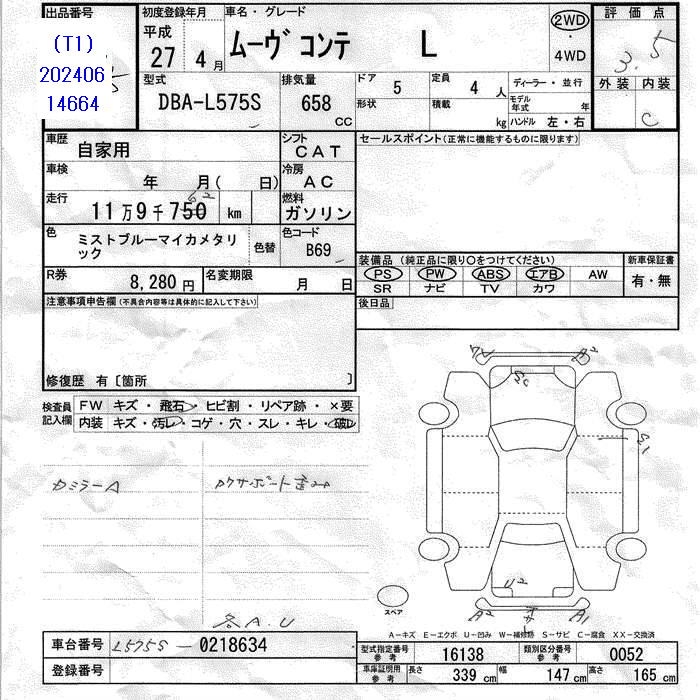 出品番号
(T1)
202406
14664
初度登録年月
平成
27 4月
車名・グレード
ムーヴ コンテ L
2WD
・
4WD
評価点
3.5
外装 内装
C
型式
DBA-L575S
排気量
658
CC
ドア 5
定員 4 人
ディーラー・並行
形状
積載 kg
モデル年式 年
ハンドル 左・右
車歴
自家用
シフト
CAT
セールスポイント(正常に機能するものに限ります)
車検
年 月( 日)
冷房
AC
走行
11万9千750 km
燃料
ガソリン
色
ミストブルーマイカメタリック
色替
色コード
B69
装備品 (純正品に限り○をつけてください)
新車保証書
PS PW ABS エアB AW
有・無
SR ナビ TV カワ
R券
8,280円
名変期限
月 日
後日品
注意事項申告欄(不具合内容等は具体的に記入して下さい)
修復歴 有〔箇所 〕
検査員
記入欄
FW キズ・飛石・ヒビ割・リペア跡・×要
内装 キズ・汚レ・コゲ・穴・スレ・キレ・破レ
カミラーA
A2
U2
A2
A1
スペア
各A.U
A-キズ E-エクボ U-凹み W-補修跡 S-サビ C-腐食 XX-交換済
車台番号 L575S - 0218634
登録番号
型式指定番号
参考
16138
類別区分番号
参考
0052
車庫証明用
参考
長さ 339 cm
幅 147 cm
高さ 165 cm